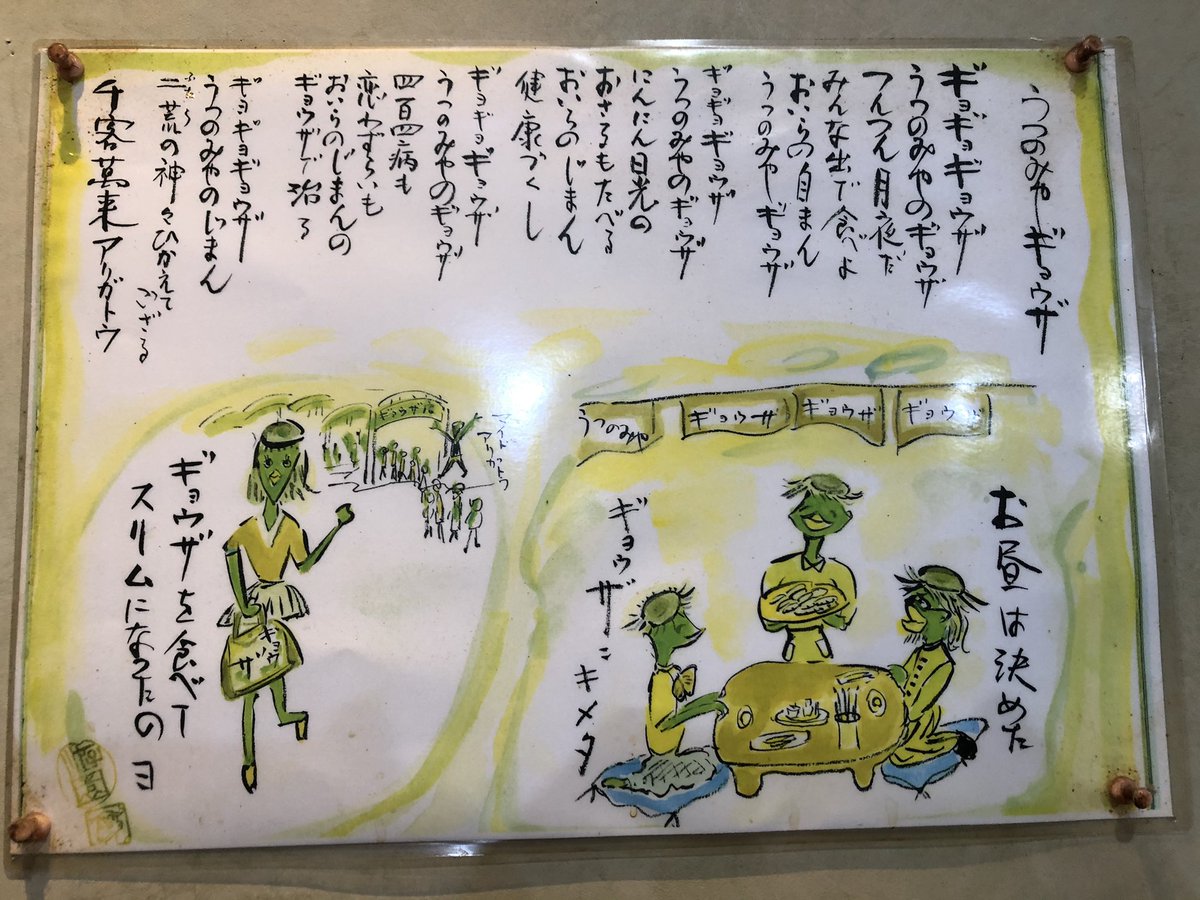 うつのみやギョウザ
ギョギョギョウザ
うつのみやのギョウザ
つんつん月夜だ
みんな出て食べよ
おいらの自まん
うつのみやギョウザ
ギョギョギョウザ
うつのみやのギョウザ
にんにん日光の
おさるもたべる
おいらのじまん
健康づくし
ギョギョギョウザ
うつのみやのギョウザ
四百四病も
恋わずらいも
おいらのじまんの
ギョウザで治る
ギョギョギョウザ
うつのみやのじまん
二荒の神々ひかえて
ござる
千客萬来アリガトウ
うつのみや
ギョウーザ
ギョウザ
お昼は決めた
ギョウザニキメタ
ギョウザ店
マイド
アリガトウ
ギョウザを食べて
スリムになったのヨ
ギョウザ